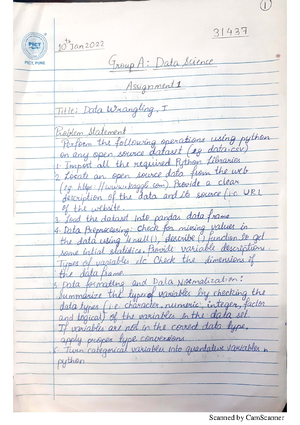 1
PICT
PICT, PUNE
10th Jan 2022
31437
Group A: Data Science
Assignment 1
Title: Data Wrangling, I
Problem Statement
Perform the following operations using python
on any open source dataset (eg data.csv)
1. Import all the required Python Libraries
2. Locate an open source data from the web
(eg https://www.kaggle.com) Provide a clear
description of the data and its source (i.e URL
of the website.
3. Load the dataset into pandas data frame
4. Data Preprocessing: Check for missing values in
the data using isnull(), describe() function to get
some initial statistics. Provide variable descriptions.
Types of variables etc Check the dimensions of
the data frame
5. Data formatting and Data Normalization:
Summarize the types of variables by checking the
data types (i.e. character, numeric, integer, factor
and logical) of the variables in the data set
If variables are not in the correct data type,
apply proper type conversions
6. Turn categorical variables into quantative variables in
python
Scanned by CamScanner